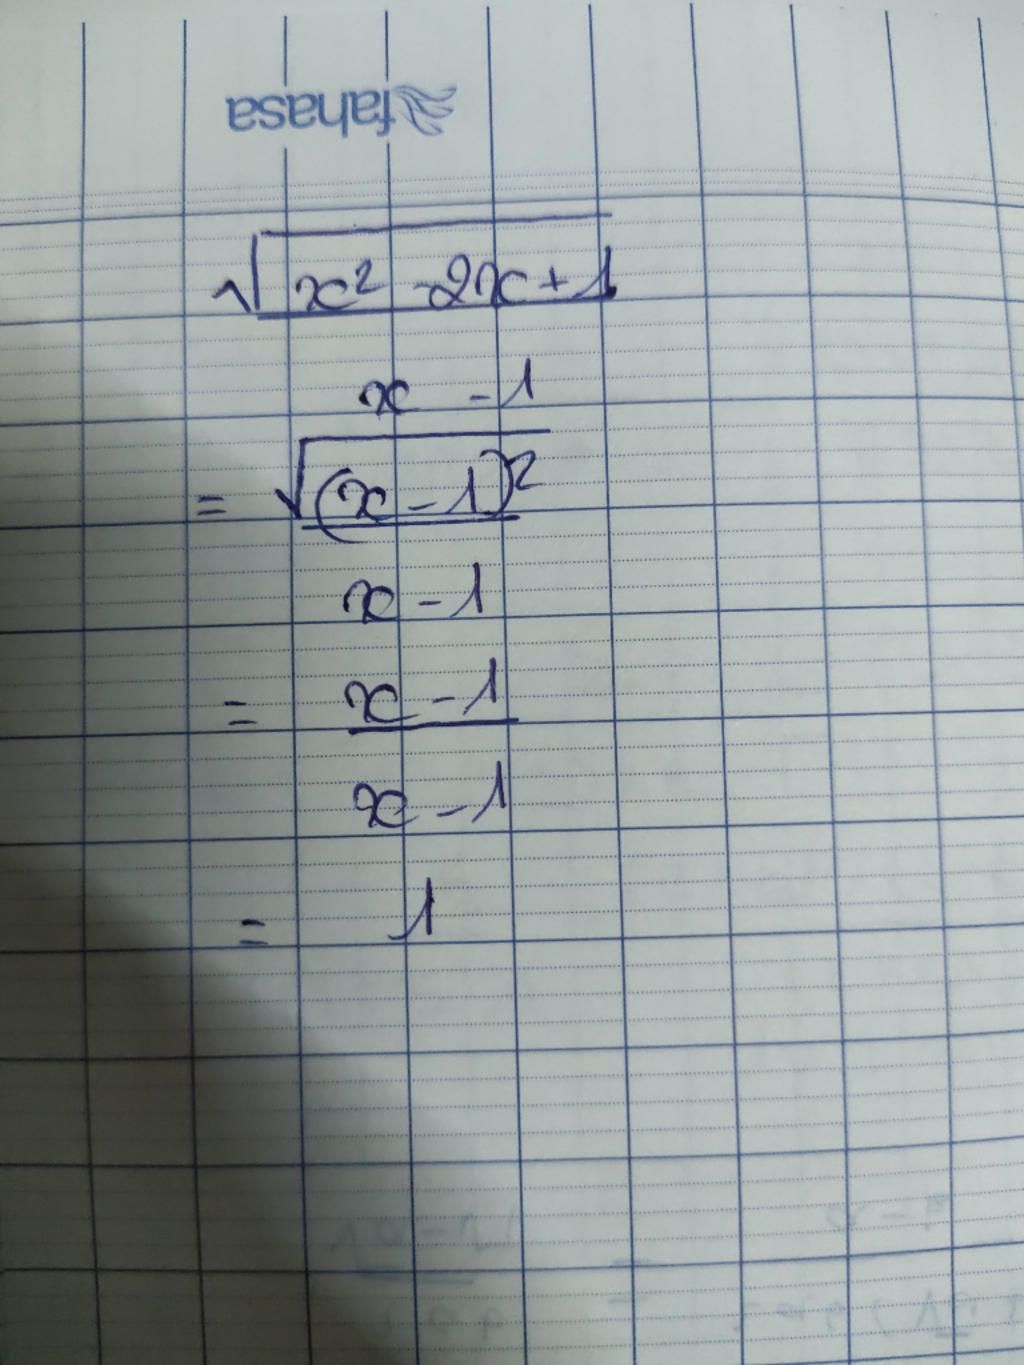 fahasa
√(x² - 2x + 1)
x - 1
= √((x - 1)²)
x - 1
= x - 1
x - 1
= 1